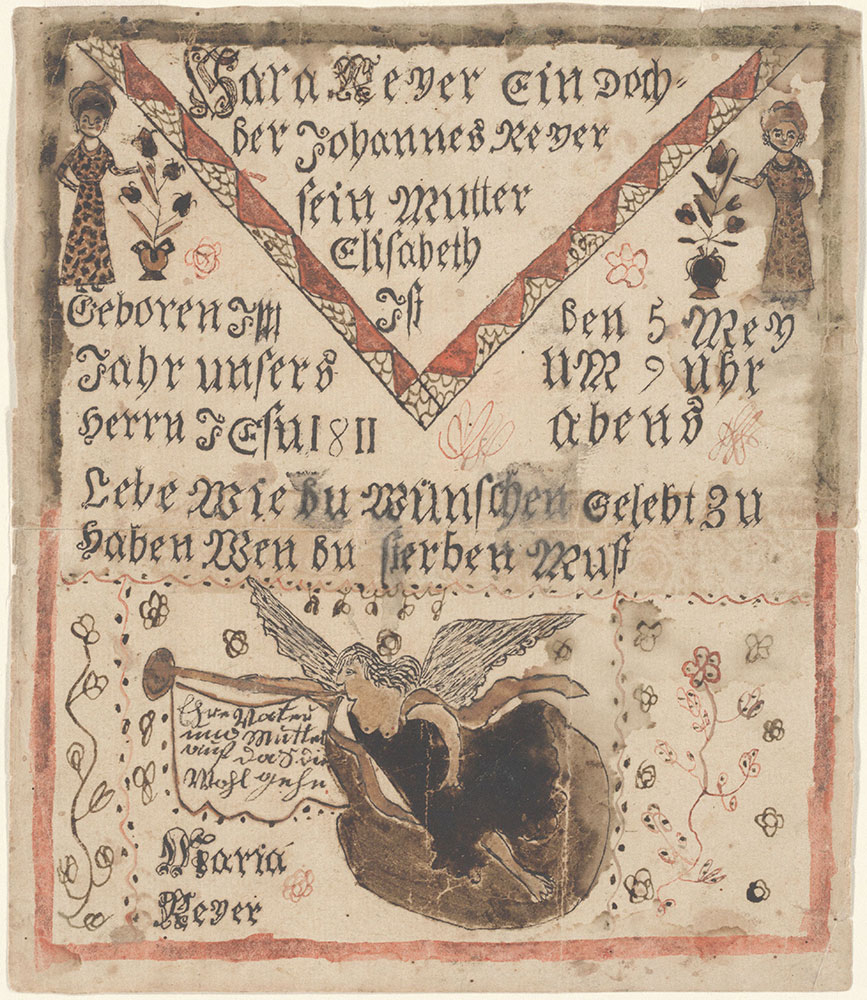 Sara Reyer Ein Doch=
der Johannes Reyer
sein Mutter
Elisabeth
Ist
Geboren Im
Jahr unsers
Herrn JEsu 1811
den 5 Mey
UM 9 Uhr
abens
Lebe Wie du Wünschen Gelebt Zu
Haben Wen du sterben Must
Ehre Vater
und Mutter
auf das die
Wohl gehn
Maria
Reyer